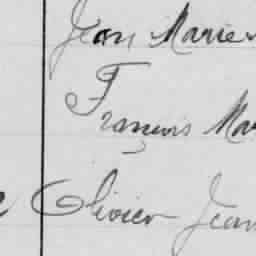 Jean Marie
François Mar
Olivier Jean